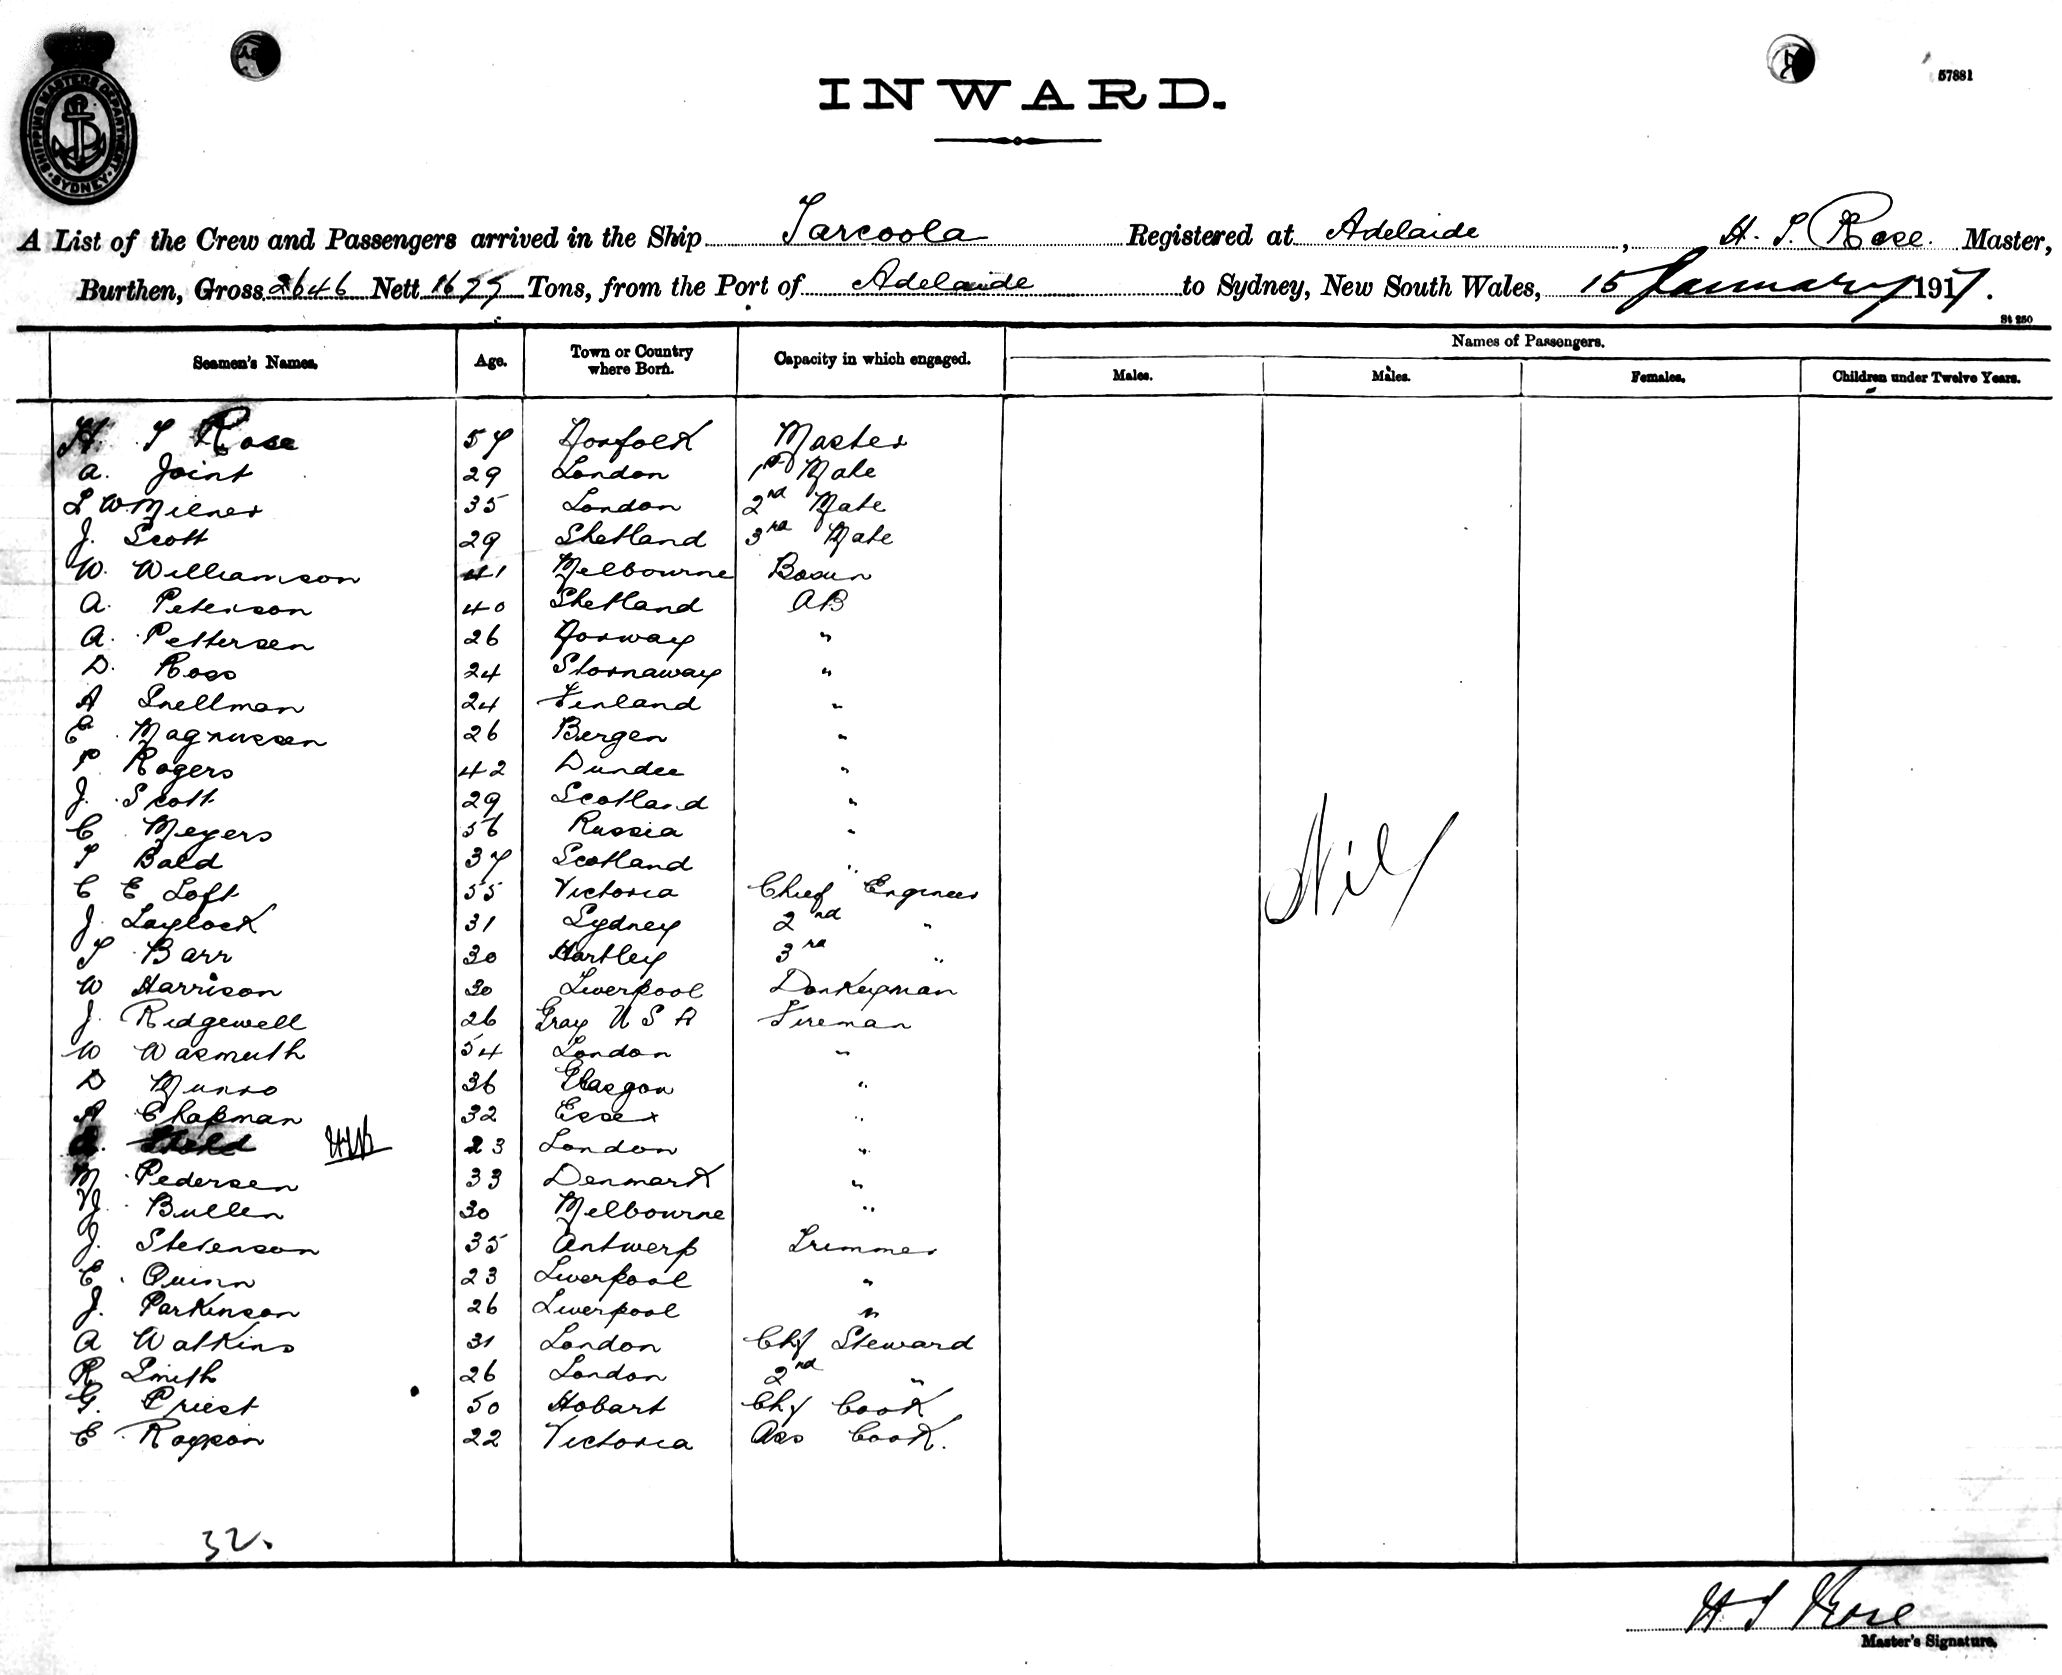 SHIPPING MASTERS DEPARTMENT SYDNEY
57881
INWARD.
A List of the Crew and Passengers arrived in the Ship Tarcoola Registered at Adelaide, H. S. Rose. Master,
Burthen, Gross 2646 Nett Tons, from the Port of Adelaide to Sydney, New South Wales, 15 January 1917.
St 250
Seamen's Names. Age. Town or Country where Born. Capacity in which engaged. Names of Passengers.
Males. Males. Females. Children under Twelve Years.
H. S Rose 57 Norfolk Master
A. Joint 29 London 1st Mate
L W Milner 35 London 2nd Mate
J. Scott 29 Shetland 3rd Mate
W. Williamson 41 Melbourne Bosun
A. Peterson 40 Shetland AB
A. Pettersen 26 Norway "
D. Ross 24 Stornaway "
A Snellman 24 Finland "
E. Magnussen 26 Bergen "
P Rogers 42 Dundee "
J. Scott 29 Scotland "
C Meyers 56 Russia "
S Bald 37 Scotland "
C E Loft 55 Victoria Chief Engineer
J. Laylock 31 Sydney 2nd "
S Barr 30 Hartley 3rd "
W Harrison 30 Liverpool Donkeyman
J. Ridgewell 26 Gray U S A Fireman
W Wasmuth 54 London "
D Munro 36 Glasgow "
A Chapman 32 Essex "
23 London "
M. Pedersen 33 Denmark "
Bullen 30 Melbourne "
J. Stevenson 35 Antwerp Trimmer
C. Quinn 23 Liverpool "
J. Parkinson 26 Liverpool "
A Watkins 31 London Chf Steward
R Smith 26 London 2nd "
G. Priest 50 Hobart Chf Cook
E Royson 22 Victoria Ass Cook.
Nil
32.
H S Rose
Master's Signature.